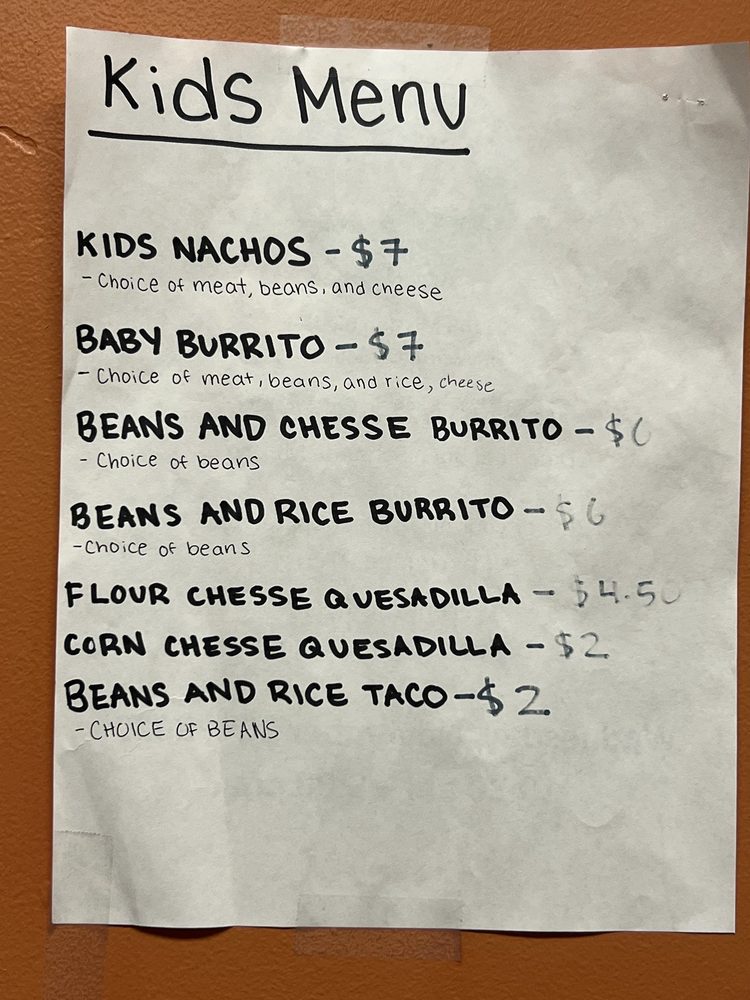 Kids Menu
KIDS NACHOS - $7
- Choice of meat, beans, and cheese
BABY BURRITO - $7
- Choice of meat, beans, and rice, cheese
BEANS AND CHESSE BURRITO - $6
- Choice of beans
BEANS AND RICE BURRITO - $6
- Choice of beans
FLOUR CHESSE QUESADILLA - $4.50
CORN CHESSE QUESADILLA - $2
BEANS AND RICE TACO - $2
- CHOICE OF BEANS